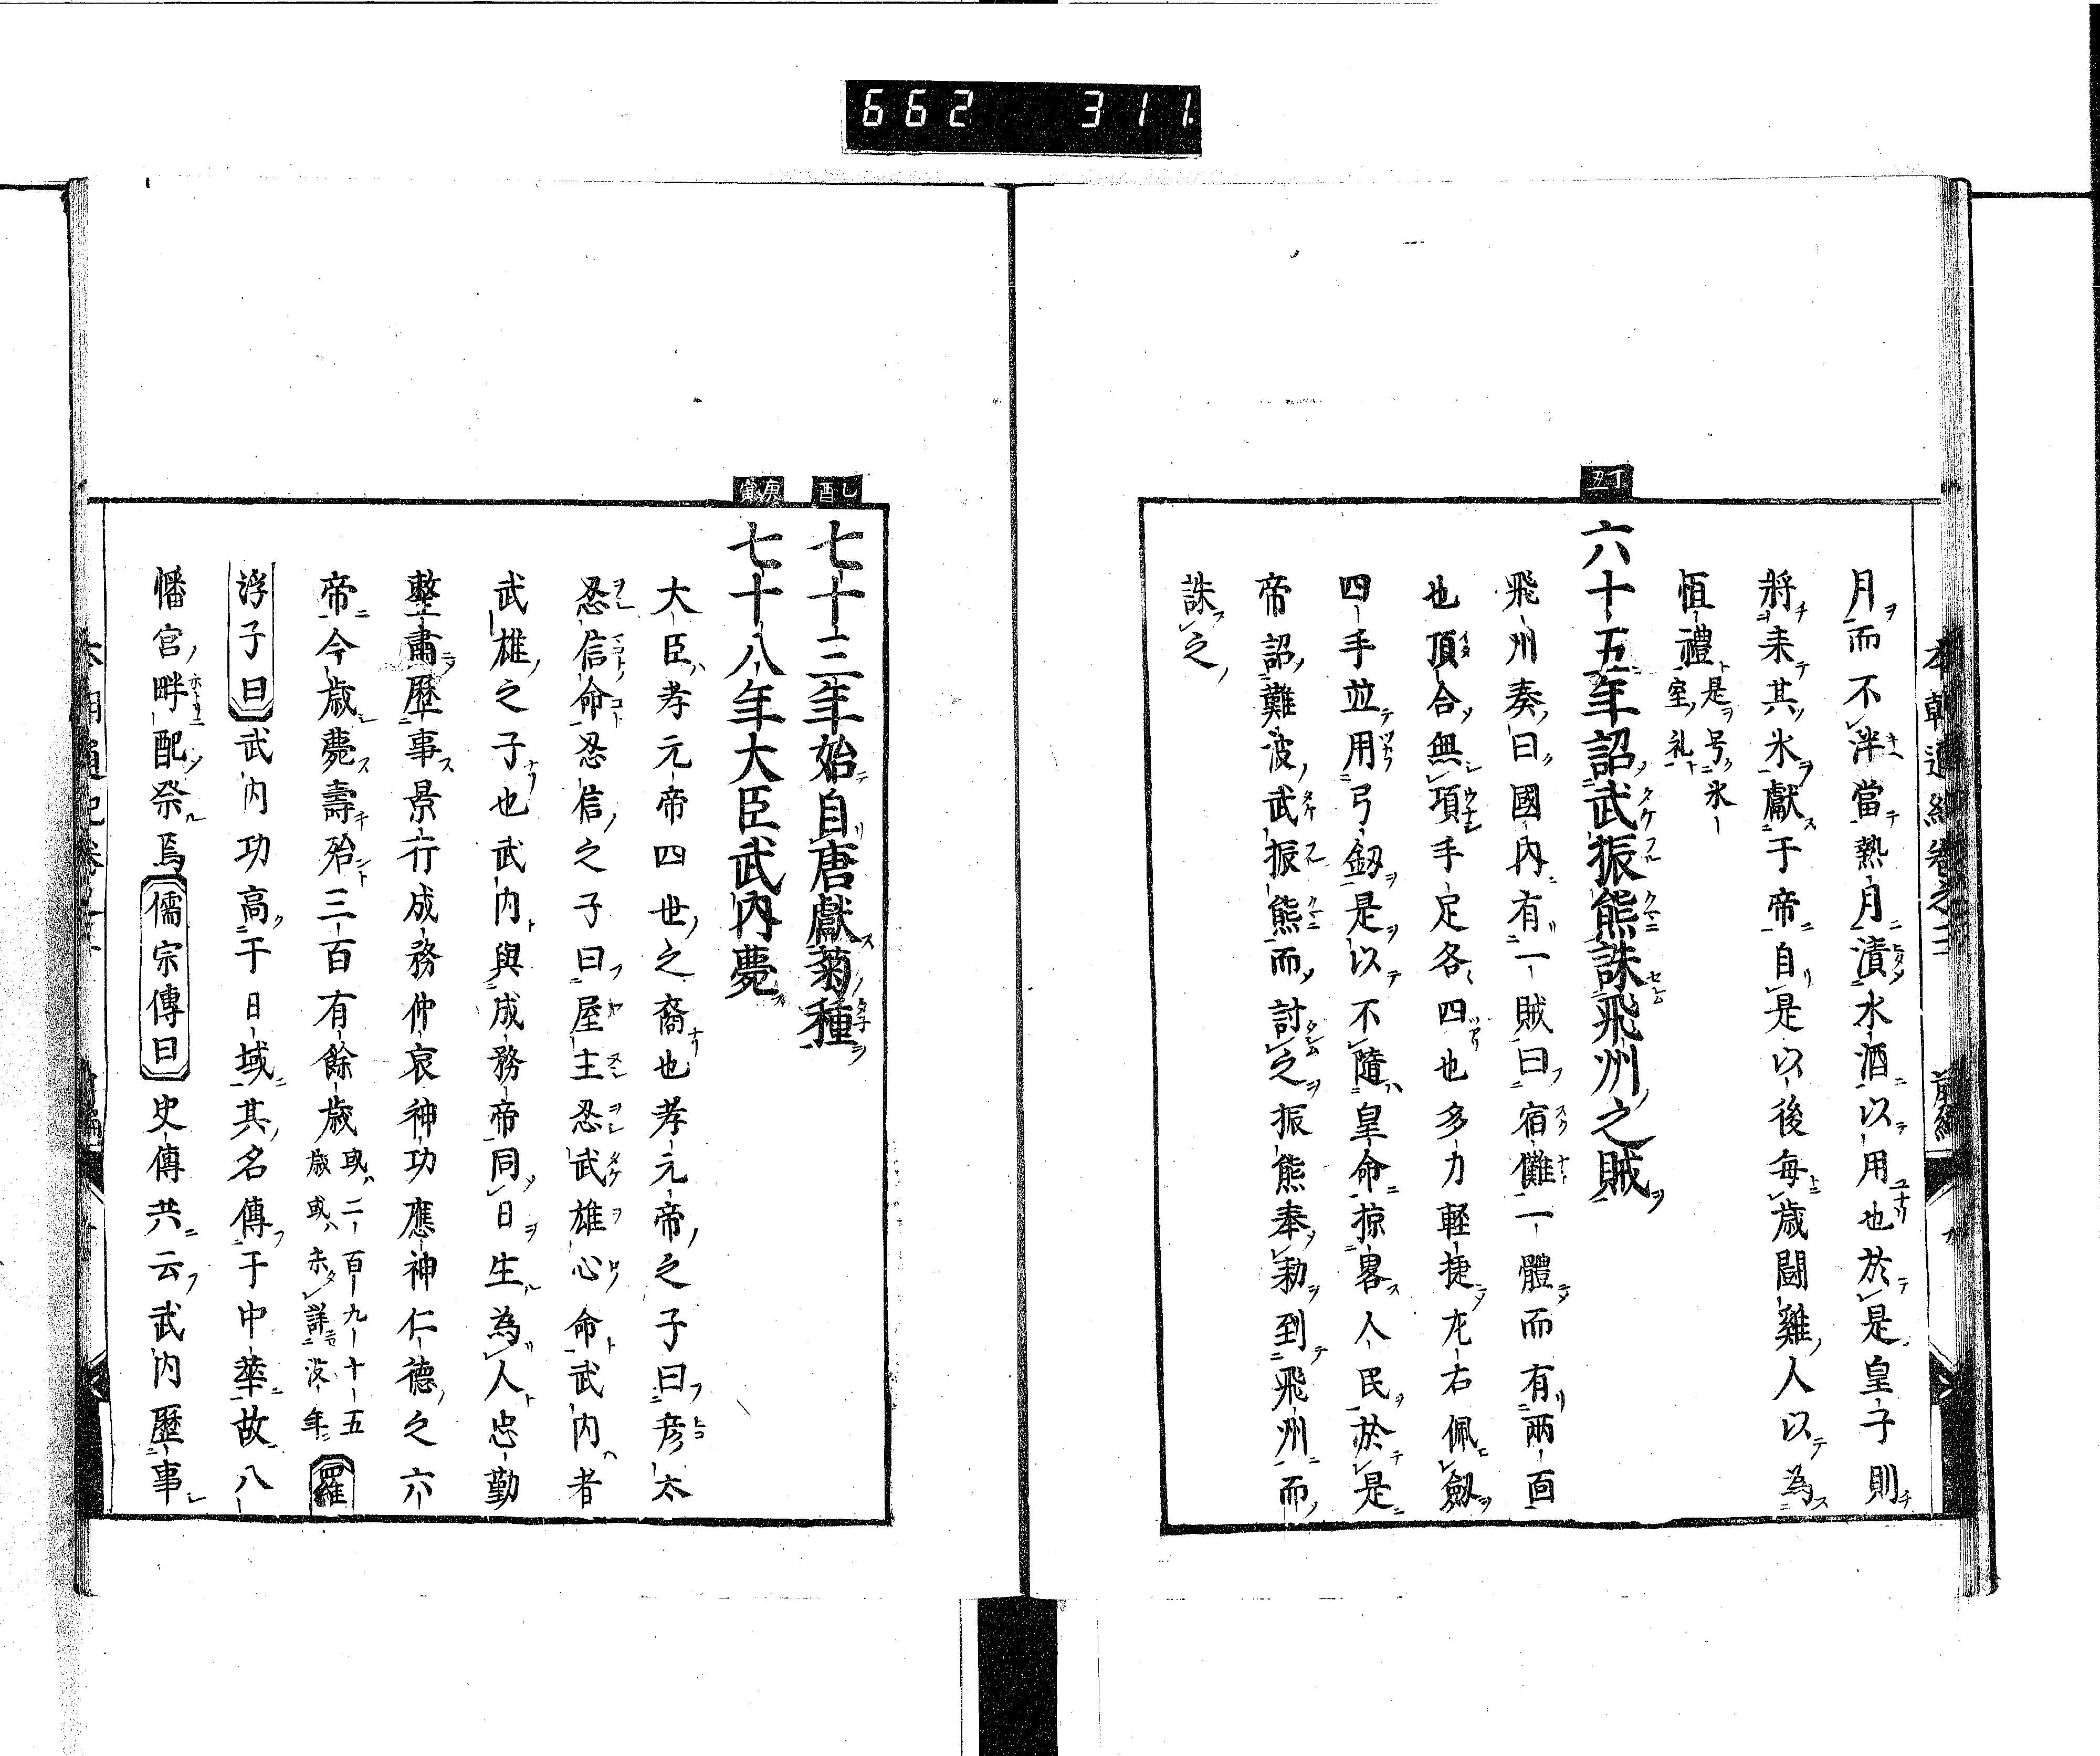 662 311.
本朝通紀卷之二 前編 九
月而不泮當熱月漬水酒以用也於是皇子則
將来其氷獻于帝自是以後每歳闘雞人以為
恒禮是号氷室礼
丁丑
六十五年詔武振熊誅飛州之賊
飛州奏曰國内有一賊曰宿儺一體而有兩面
也頂合無項手足各四也多力軽捷左右佩劔
四手並用弓釼是以不隨皇命掠畧人民於是
帝詔難波武振熊而討之振熊奉勅到飛州而
誅之
乙酉
七十三年始自唐獻菊種
庚寅
七十八年大臣武内薨
大臣孝元帝四世之裔也孝元帝之子曰彦太
忍信命忍信之子曰屋主忍武雄心命武内者
武雄之子也武内與成務帝同日生為人忠勤
整肅歷事景行成務仲哀神功應神仁德之六
帝今歳薨壽殆三百有餘歳或二百九十五歳或未詳没年羅
浮子曰武内功高于日域其名傳于中華故八
幡宮畔配祭焉儒宗傳曰史傳共云武内歷事